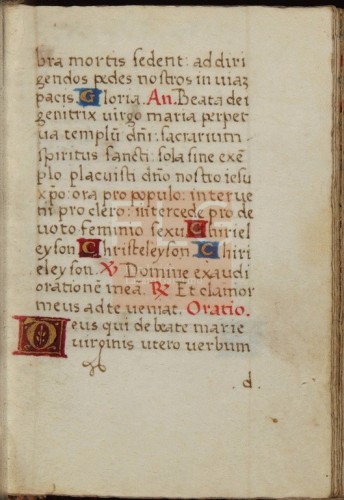 bra mortis sedent: ad diri
gendos pedes nostros in uiaz
pacis. Gloria. An. Beata dei
genitrix uirgo maria perpet
ua templũ dñi: sacrarium
spiritus sancti: sola sine exẽ
plo placuisti dño nostro iesu
xp̃o: ora pro populo: interue
ni pro clero: intercede pro de
uoto feminio sexu. Chiriel
eyson. Christeleyson. Chiri
eleyson. ℣ Domine exaudi
orationẽ meã. ℟ Et clamor
meus ad te ueniat. Oratio.
Deus qui de beate marie
uirginis utero uerbum
d.